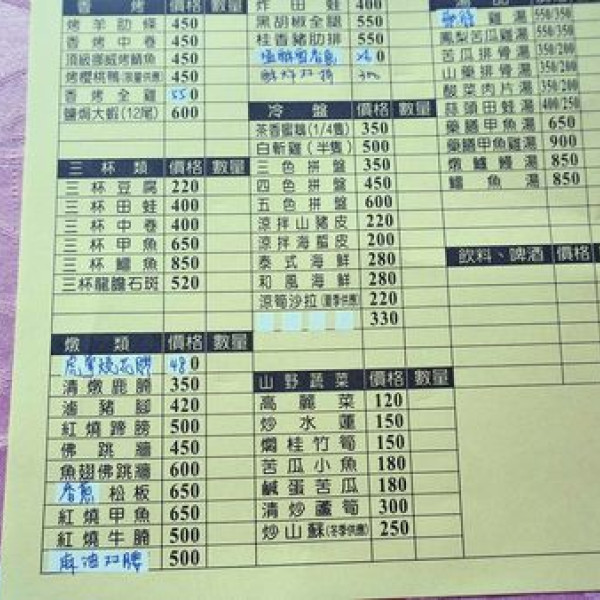 香烤 價格 數量
烤羊肋條 450
香烤中卷 450
頂級挪威烤鯖魚 450
烤櫻桃鴨(限量供應) 450
香烤全雞 550
鹽焗大蝦(12尾) 600
三杯類 價格 數量
三杯豆腐 220
三杯田蛙 400
三杯中卷 400
三杯甲魚 650
三杯鱷魚 850
三杯龍膽石斑 520
燉類 價格 數量
480
清燉鹿腩 350
滷豬腳 420
紅燒蹄膀 500
佛跳牆 450
魚翅佛跳牆 600
香蔥松板 650
紅燒甲魚 650
紅燒牛腩 500
麻油双腰 500
炸田蛙 400
黑胡椒全腿 550
桂香豬肋排 550
冷盤 價格 數量
茶香蜜鵝(1/4隻) 350
白斬雞(半隻) 500
三色拼盤 350
四色拼盤 450
五色拼盤 600
涼拌山豬皮 220
涼拌海蜇皮 200
泰式海鮮 280
和風海鮮 280
涼筍沙拉(夏季供應) 220
330
山野蔬菜 價格 數量
高麗菜 120
炒水蓮 150
燜桂竹筍 150
苦瓜小魚 180
鹹蛋苦瓜 180
清炒蘆筍 300
炒山蘇(冬季供應) 250
湯品
雞湯 550/350
鳳梨苦瓜雞湯 550/350
苦瓜排骨湯 350/200
山藥排骨湯 350/200
酸菜肉片湯 350/200
蒜頭田蛙湯 400/250
藥膳甲魚湯 650
藥膳甲魚雞湯 900
燉鱸鰻湯 850
鱷魚湯 850
飲料、啤酒 價格